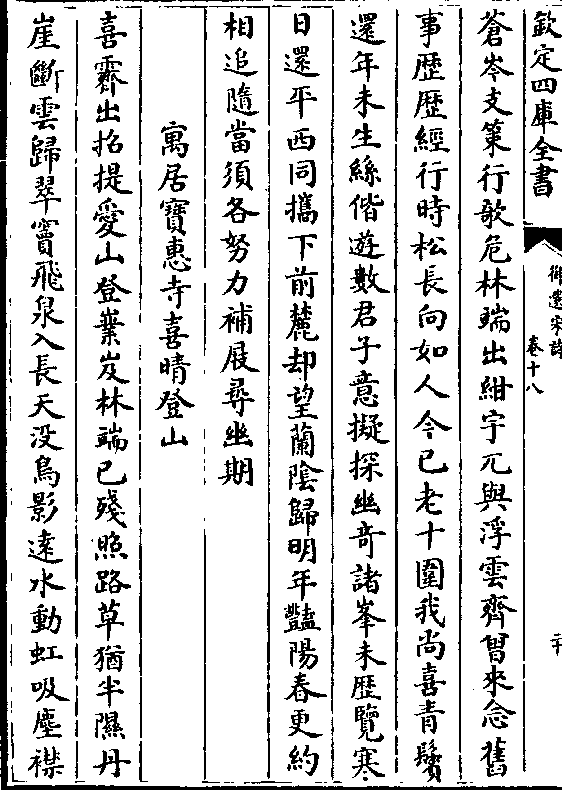 欽定四庫全書
御選宋詩
卷十八
二十
蒼岑支䇿行歌危林端出紺宇兀與浮雲齊曾來念舊
事歴歴經行時松長向如人今已老十圍我尚喜青鬢
還年未生絲偕遊數君子意擬探幽竒諸峯未歴覽寒
日還平西同攜下前麓却望蘭陰歸明年豔陽春更約
相追隨當須各努力補屐尋幽期
寓居寶惠寺喜晴登山
喜霽出招提愛山登嶪岌林端已殘照路草猶半隰丹
崖斷雲歸翠竇飛泉入長天没鳥影遠水動虹吸塵襟